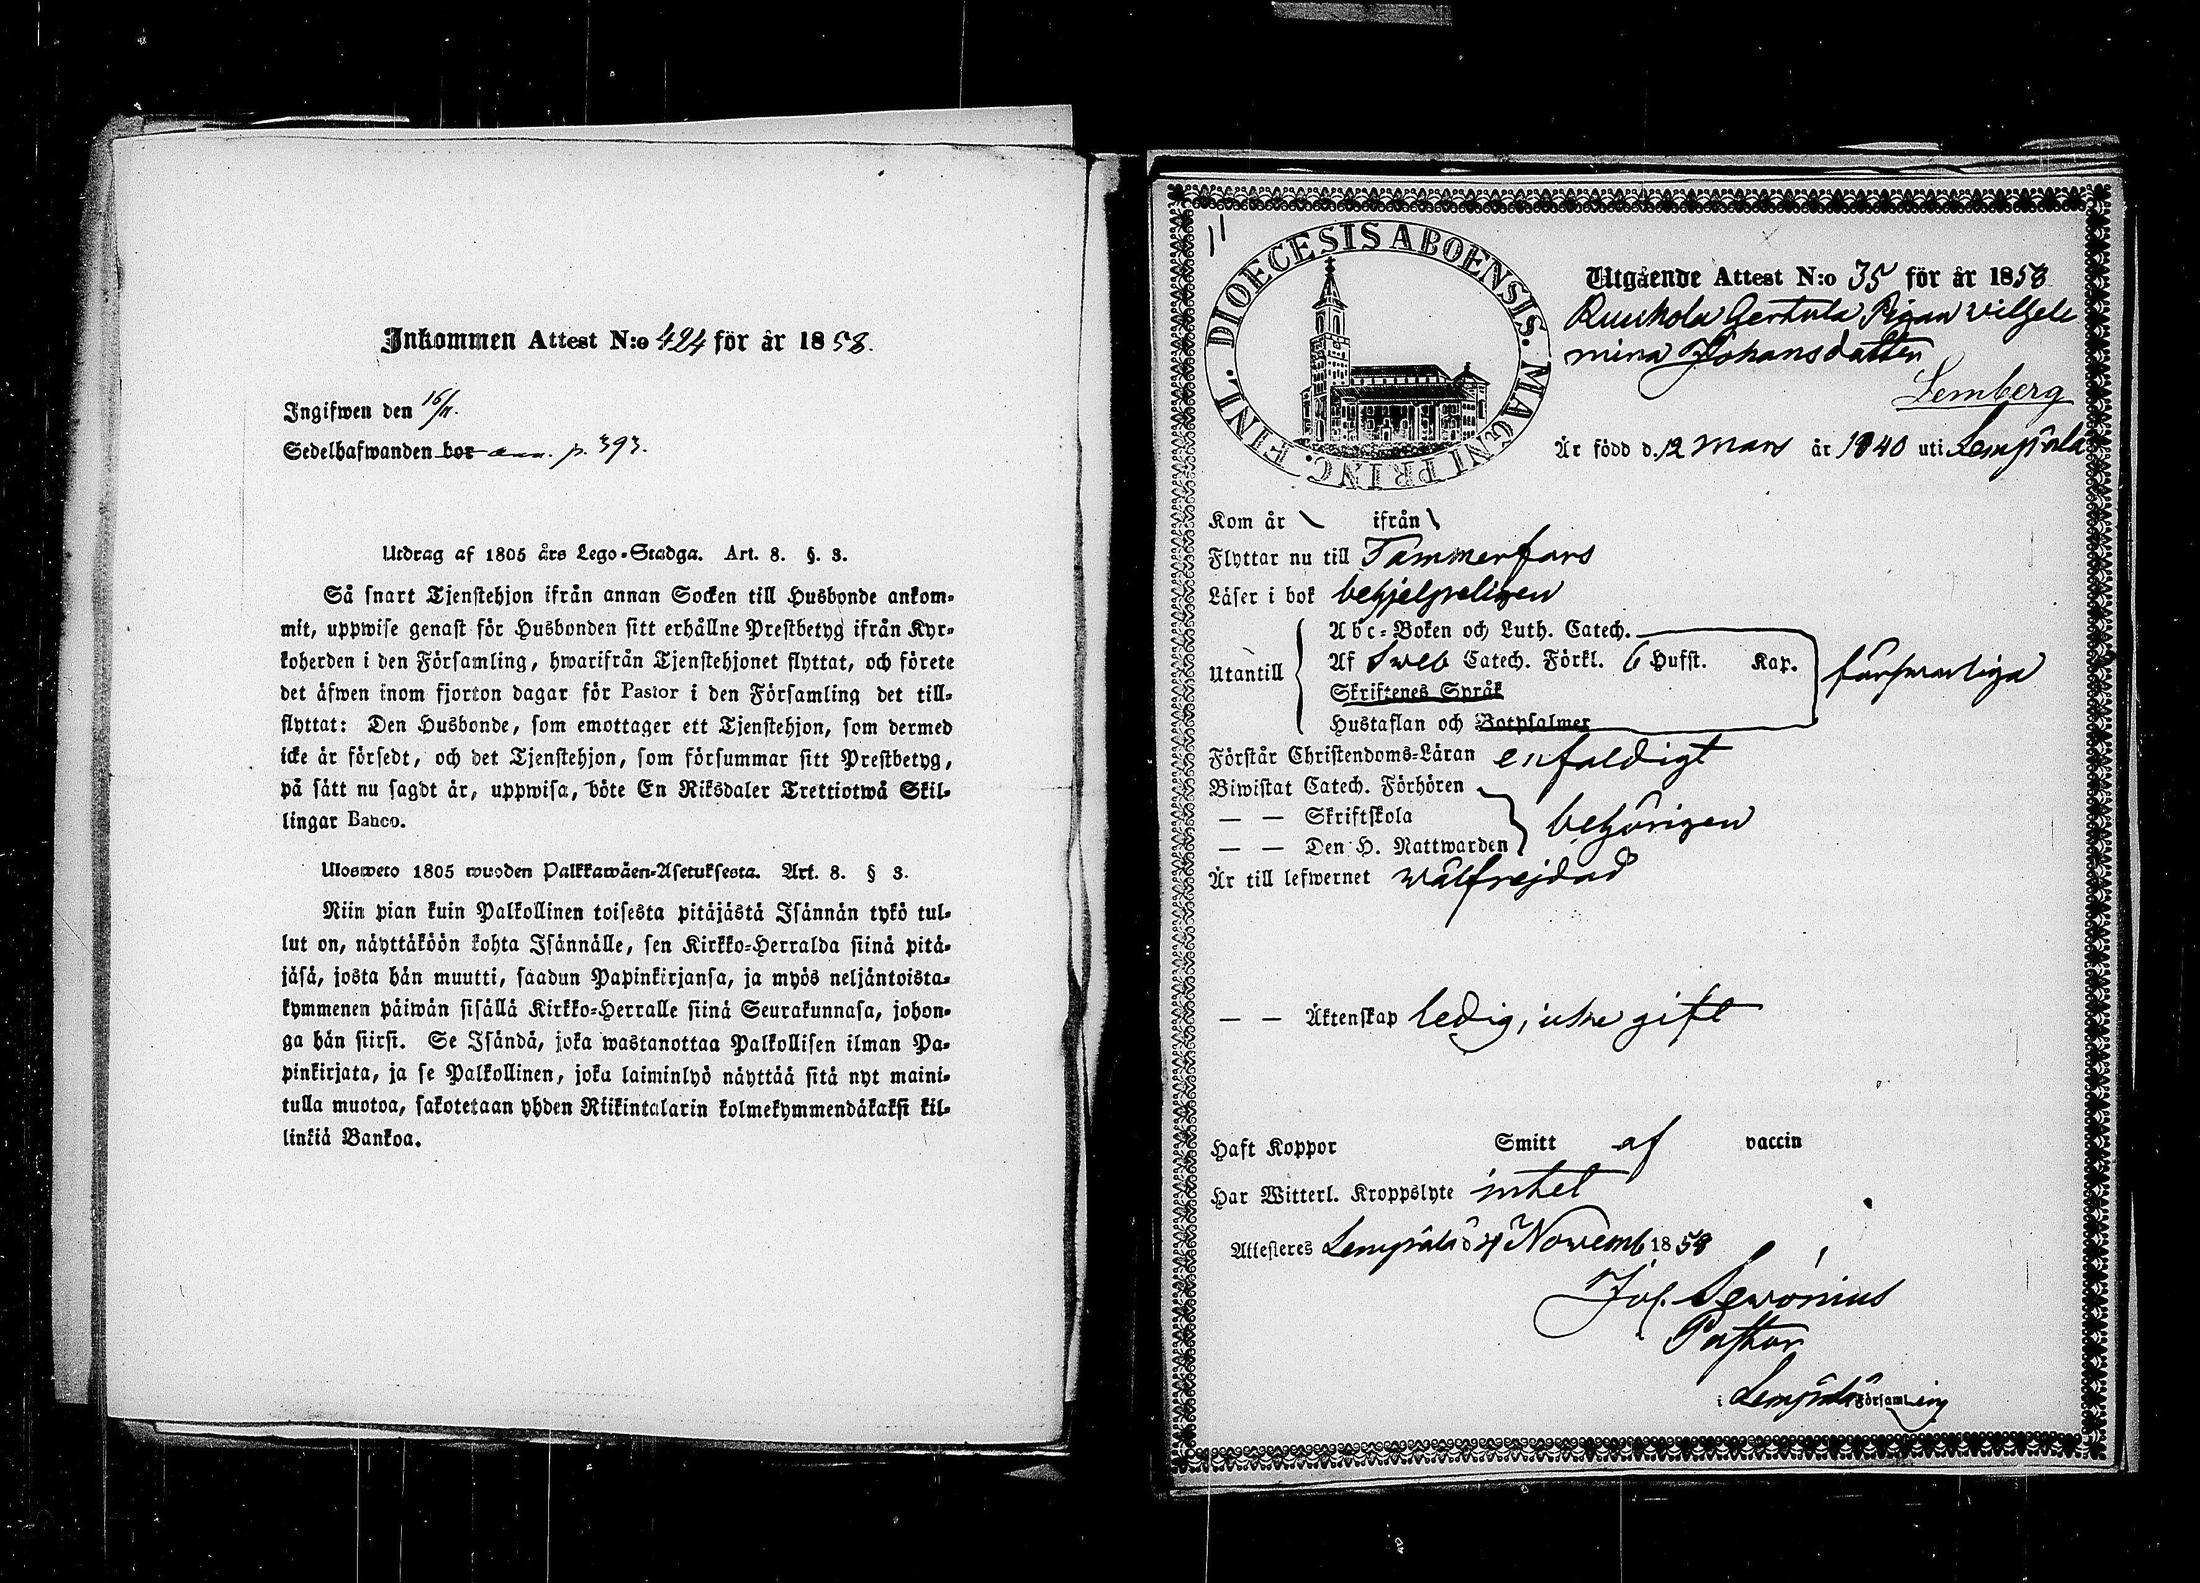 Inkommen Attest N:o 424 för år 1858.
Ingifwen den 16/11.
Sedelhafwanden bor ann. p. 393.
Utdrag af 1805 års Lego-Stadga. Art. 8. §. 3.
Så snart Tjenstehjon ifrån annan Socken till Husbonde ankom-
mit, uppwise genast för Husbonden sitt erhållne Prestbetyg ifrån Kyr-
koherden i den Församling, hwarifrån Tjenstehjonet flyttat, och förete
det äfwen inom fjorton dagar för Pastor i den Församling det till-
flyttat: Den Husbonde, som emottager ett Tjenstehjon, som dermed
icke är försedt, och det Tjenstehjon, som försummar sitt Prestbetyg,
på sätt nu sagdt är, uppwisa, böte En Riksdaler Trettiotwå Skil-
lingar Banco.
Ulosweto 1805 wuoden Palkkawäen-Asetuksesta. Art. 8. § 3.
Niin pian kuin Palkollinen toisesta pitäjästä Isännän tykö tul-
lut on, näyttäköön kohta Isännälle, sen Kirkko-Herralda siinä pitä-
jäsä, josta hän muutti, saadun Papinkirjansa, ja myös neljäntoista-
kymmenen päiwän sisällä Kirkko-Herralle siinä Seurakunnasa, johon-
ga hän siirsi. Se Isändä, joka wastanottaa Palkollisen ilman Pa-
pinkirjata, ja se Palkollinen, joka laiminlyö näyttää sitä nyt maini-
tulla muotoa, sakotetaan yhden Riikintalarin kolmekymmendäkaksi kil-
linkiä Bankoa.
11
DIOECESIS ABOENSIS. MAGNI PRINC. FINL.
Utgående Attest N:o 35 för år 1858
Ruuhola Gertula Pigan Wilhel
mina Johansdotter
Lemberg
Är född d. 12 Mars år 1840 uti Lempäla
Kom år \ ifrån \
Flyttar nu till Tammerfors
Läser i bok behjelpeligen
Utantill
Abc-Boken och Luth. Catech.
Af Sweb Catech. Förkl. 6 Hufst. Kap. försvarliga
Skriftenes Språk
Hustaflan och Botpsalmer
Förstår Christendoms-Läran enfaldigt
Biwistat Catech. Förhören
— — Skriftskola behörigen
— — Den H. Nattwarden
Är till lefwernet wälfrejdad
— — Äktenskap ledig, icke gift
Haft Koppor Smitt af vaccin
Har Witterl. Kroppslyte intet
Attesteres Lempäla d 4 Novemb 1858
Pastor
i Lempäla Församling